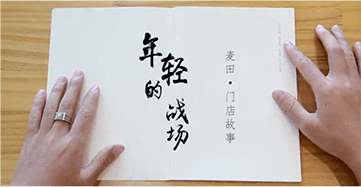 年轻的战场
麦田·门店故事